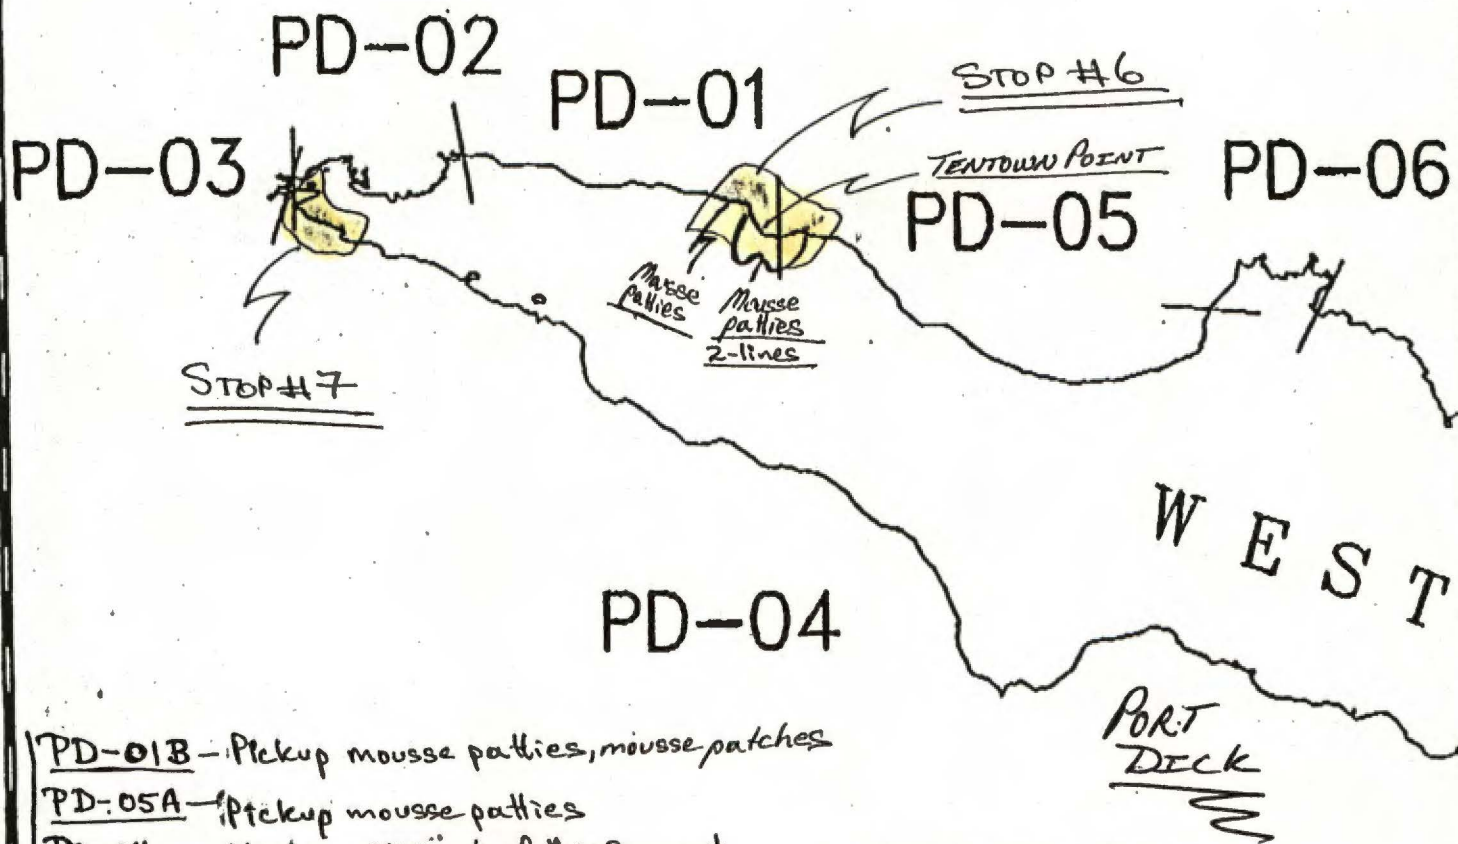 PD-02
PD-01
STOP #6
PD-03
TENTOWN POINT
PD-06
PD-05
Mousse
patties
Mousse
patties
2-lines
STOP #7
WEST
PD-04
PORT
DICK
PD-01B - Pickup mousse patties, mousse patches
PD-05A - Pickup mousse patties